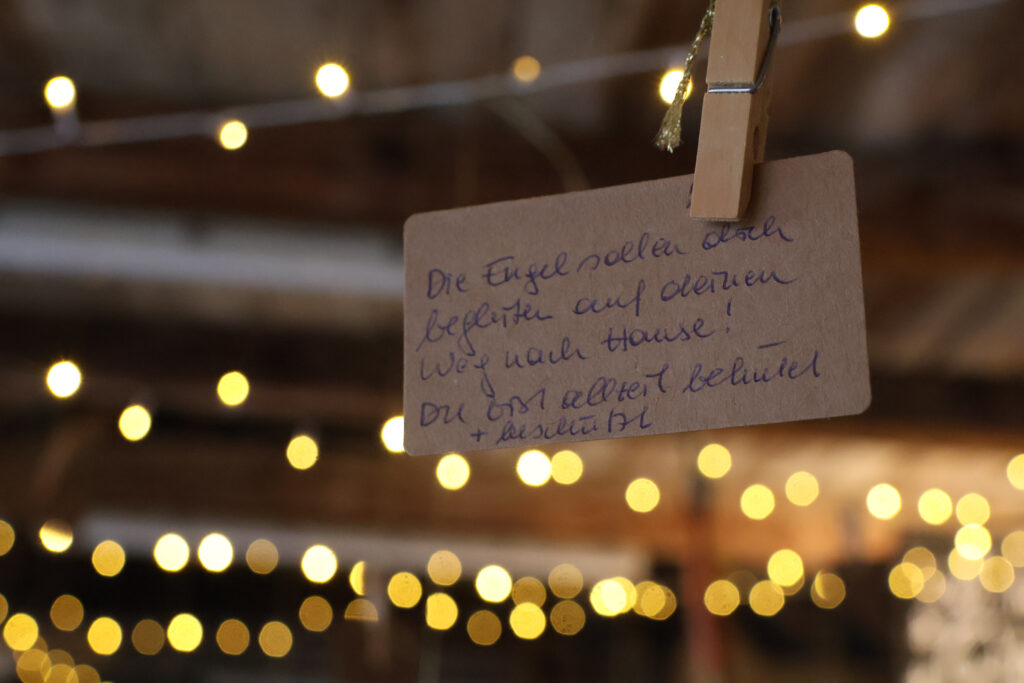 Die Engel sollen dich
begleiten auf deinen
Weg nach Hause!
Du bist allzeit behütet
+ beschützt